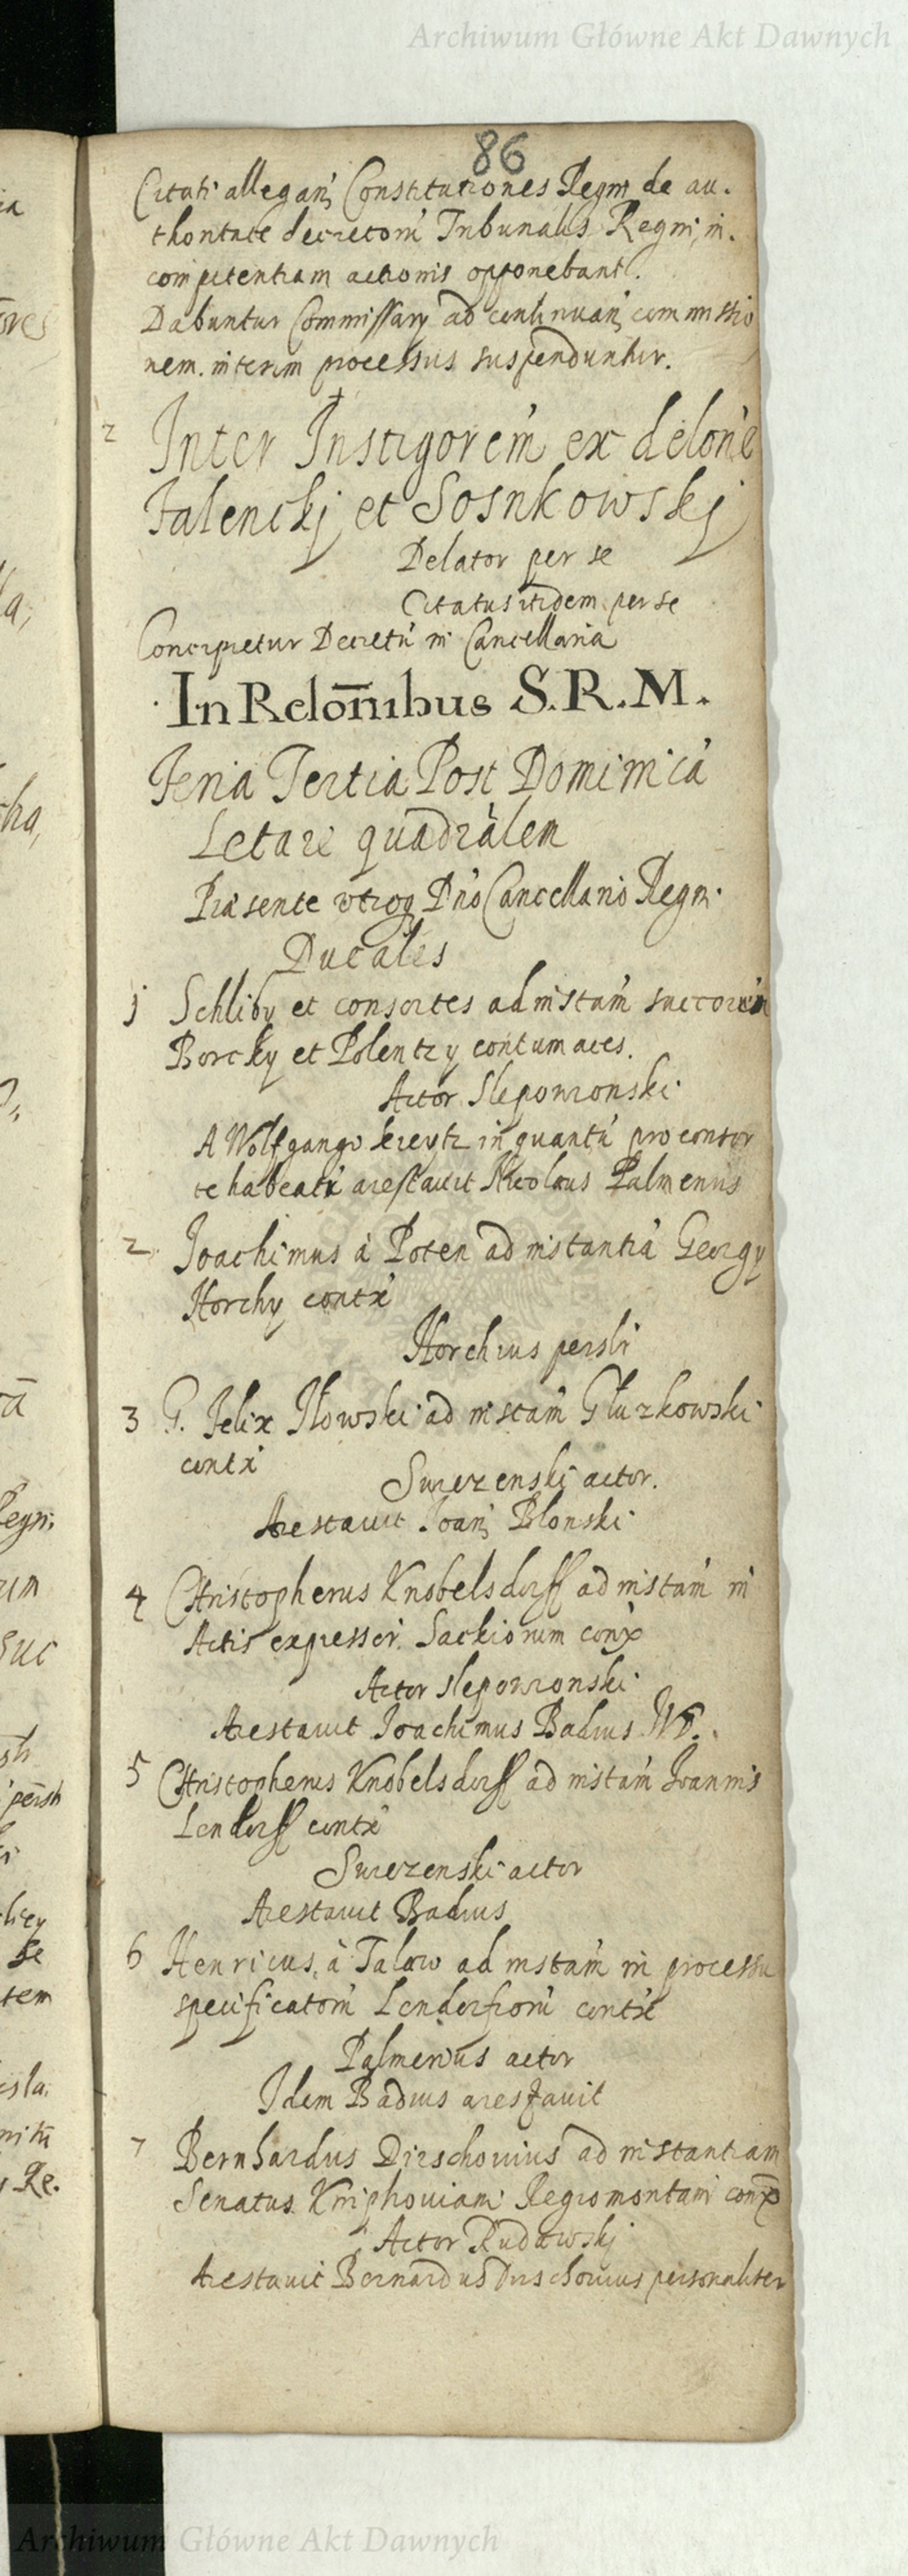 Archiwum Główne Akt Dawnych
86
Citati allegan, Constitutiones Regni de au.
thoritate decretorũ Tribunalis Regni, in.
competentiam actionis opponebant.
Dabuntur Commissary ad continuan, commissio
nem. interim processus suspenduntur.
2 Inter Instigorem ex delone
Falenckj et Sosnkowskj
Delator per se
Citatus itidem per se
Concipietur Decretũ in Cancellaria
In Relom̃ibus S.R.M.
Feria Tertia Post Dominicá
Letare quadrálem
Præsente vtroq Dńo Cancellario Regni
Ducales
1 Schliby et consortes ad instam̃ succorũ
Borcky et Polentzy contumaces.
Actor Sleporwronski
A Wolfgango Kreytz in quantũ pro consor
te habeatr arestavit Nicolaus Palmenius
2 Joachimus á Poten ad instantiá Georgy
Horchy contx
Horchius persli
3 G. Felix Iłowski ad instam Głuzkowski
contx
Swiezenski actor.
Arestavit Joan, Blonski
4 Christopherus Knobelsdorff ad instam in
Actis expressor. Sackiorum conx
Actor Slepowronski
Arestauit Joachimus Badius
5 Christopherus Knobelsdorff ad instam Joannis
Lendorff contx
Swiezenski actor
Arestauit Badius
6 Henricus á Talaw ad instam in processu
specificatorũ Lendorfiorũ contx
Palmenius actor
Idem Badius arestauit
7 Bernhardus Dirschouius ad instantiam
Senatus Kniphouiam Regiomontani conx
Actor Rudawskj
Arestauit Bernardus Dirschouius personaliter
Archiwum Główne Akt Dawnych